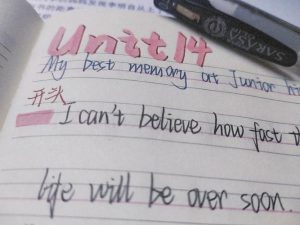 Unit 14
My best memory at Junior hi
开头
I can't believe how fast t
life will be over soon.